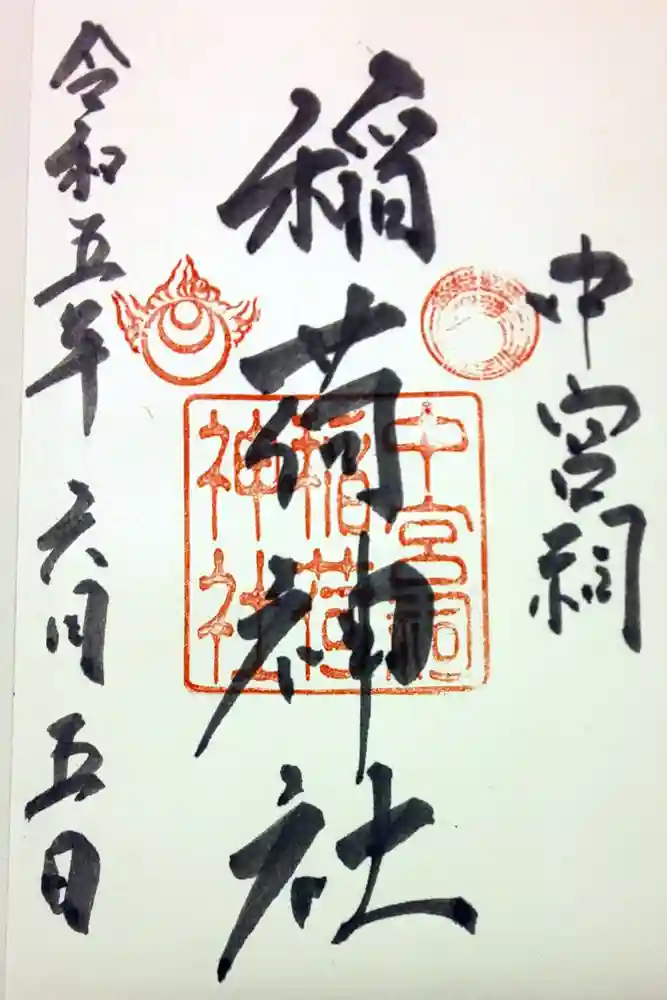 中宮祠
稲荷神社
令和五年 六月 五日
中宮祠
稲荷
神社